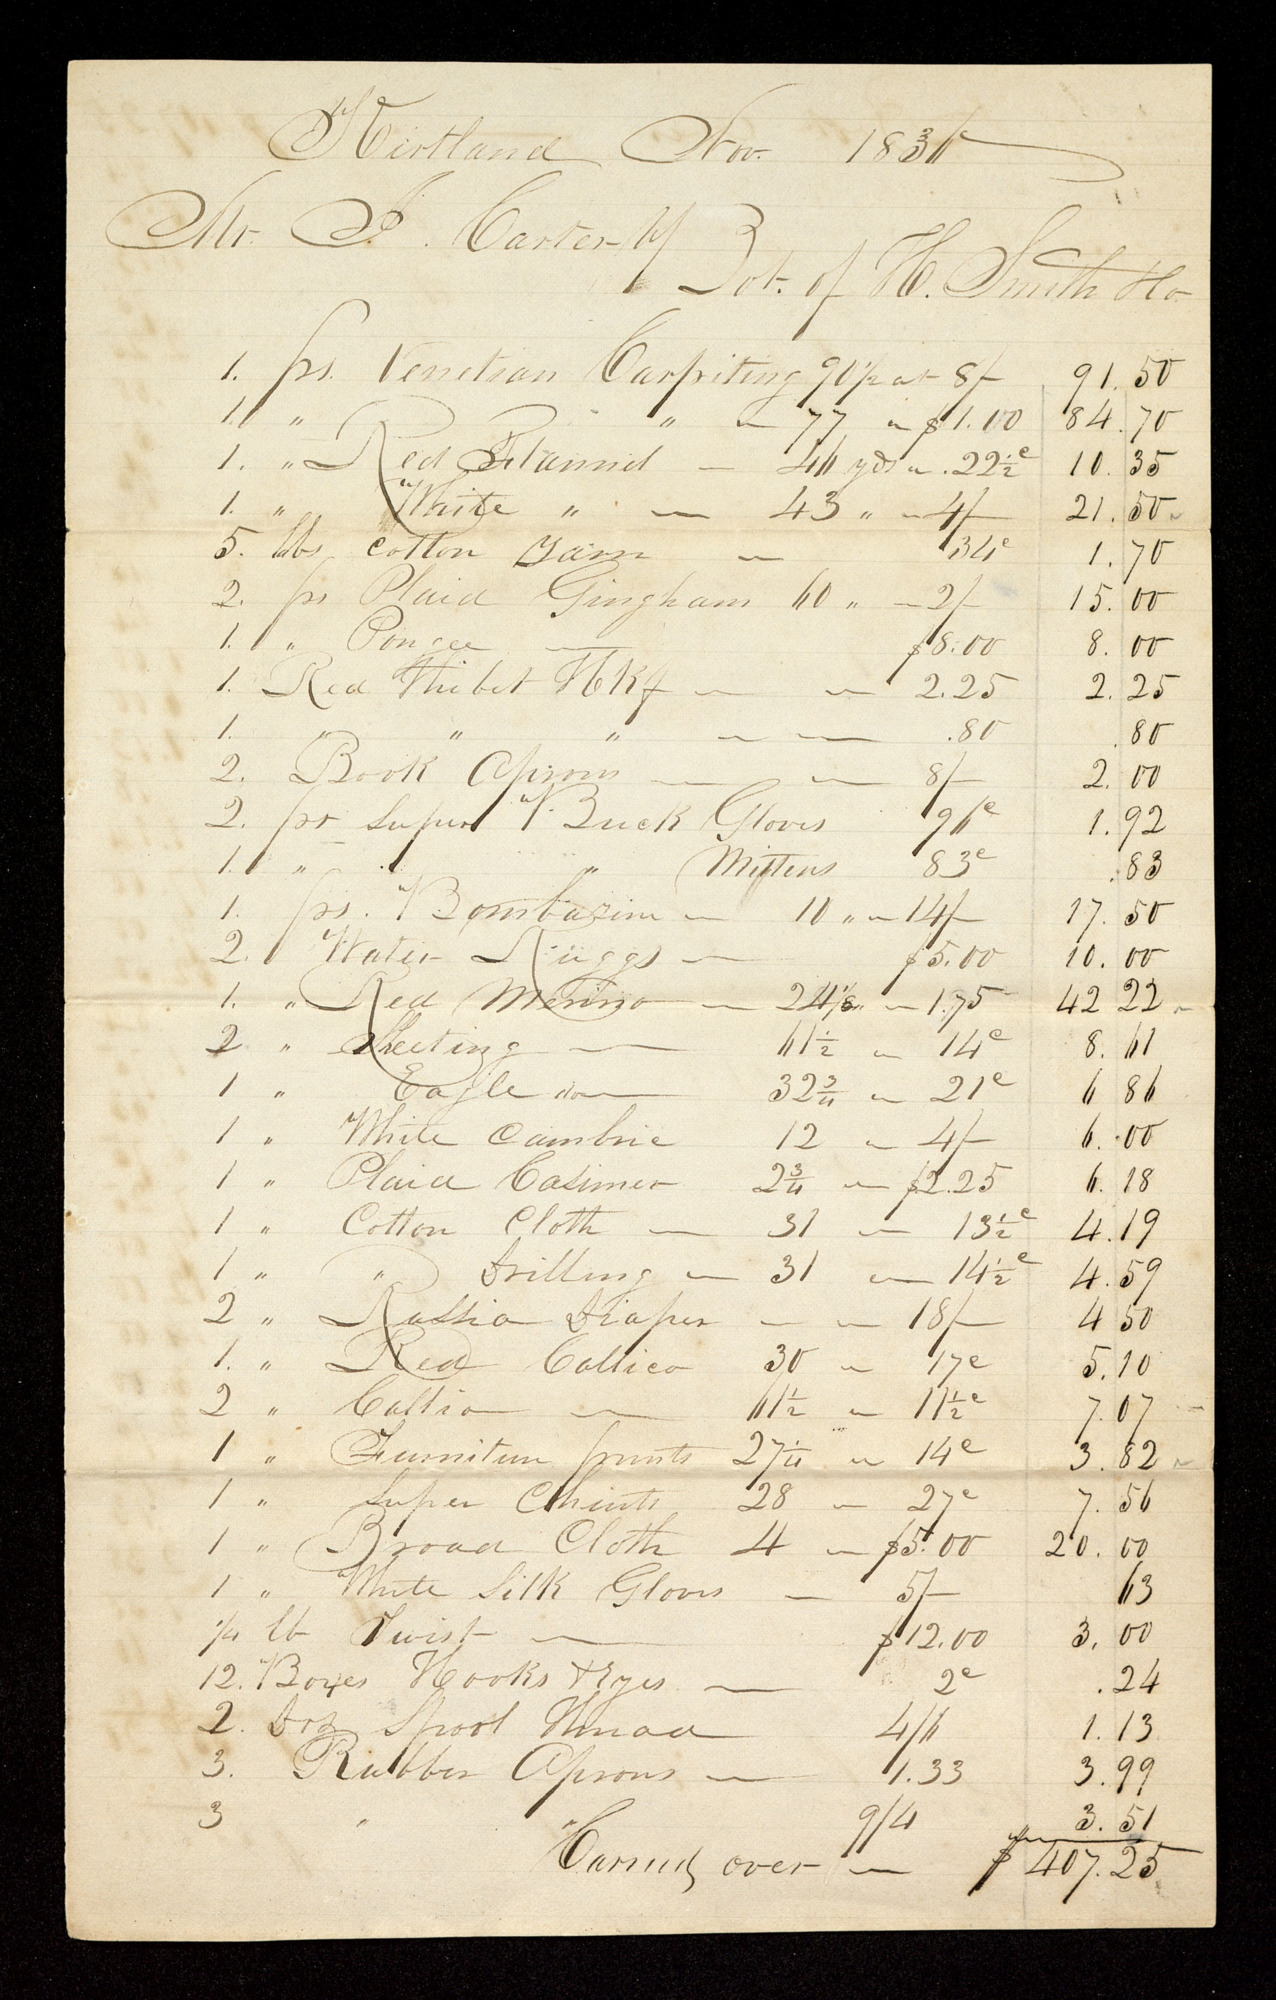 Kirtland Nov. 1836
Mr. J. Carter
Bot. of H. Smith & Co
1. ps. Venetian Carpiting 90½ at 8/- 91.50
1. " " — 77 — $1.10 84.70
1. " Red Flannel — 46 yds — .22½c 10.35
1. " White " — 43 " — 4/- 21.50
5. lbs Cotton Yarn — 34c 1.70
2. ps Plaid Gingham 60 " — 2/- 15.00
1. " Pongee — $8.00 8.00
1. Red Thibet Hkf — — 2.25 2.25
1. " " " — — .80 .80
2. Book Aprons — — 8/- 2.00
2. pr Super Buck Gloves 96c 1.92
1. " " Mittens 83c .83
1. ps. Bombazine — 10 " — 14/- 17.50
2. Water Ruggs — $5.00 10.00
1. " Red Merino — 24⅛ " — 1.75 42 22
2 " Sheeting — 61½ — 14c 8.61
1 " Eagle do — 32¾ — 21c 6 86
1 " White Cambric 12 — 4/- 6.00
1 " Plaid Casimer 2¾ — $2.25 6.18
1 " Cotton Cloth — 31 — 13½c 4.19
1 " " Drilling — 31 — 14½c 4.59
2 " Russia Diaper — — 18/- 4 50
1. " Red Callico 30 — 17c 5.10
2 " Callico — 61½ — 11½c 7.07
1 " Furniture prints 27¼ — 14c 3.82
1 " Super Chints 28 — 27c 7.56
1 " Broad Cloth 4 — $5.00 20.00
1 " White Silk Gloves — 5/- 63
¼ lb Twist — $12.00 3.00
12. Boxes Hooks & Eyes — 2c .24
2. Doz Spool Thread 4/6 1.13
3. Rubber Aprons — 1.33 3.99
3 " " 9/4 3.51
Carried over — $407.25